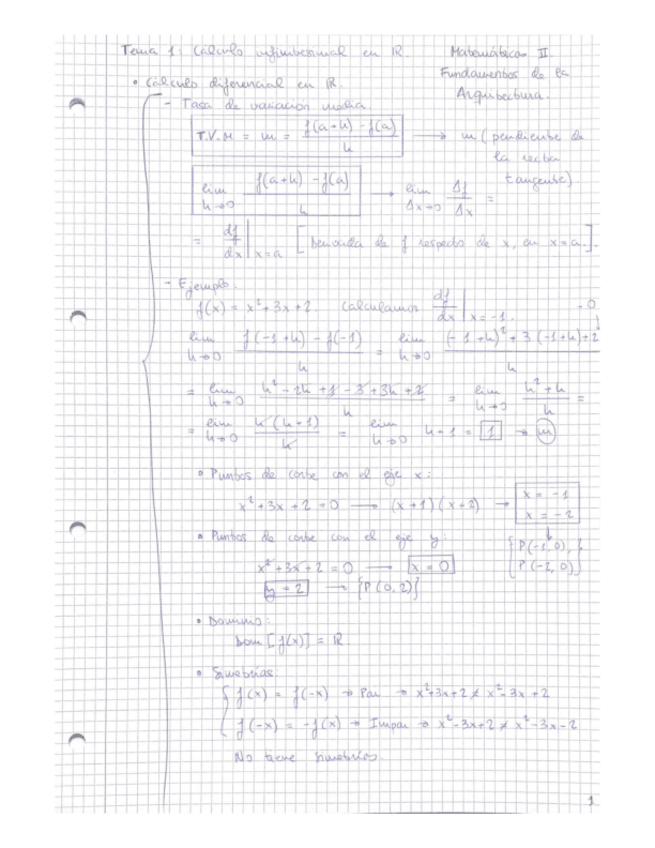 Tema 1: Cálculo infinitesimal en ℝ. Matemáticas II
Fundamentos de la
Arquitectura.
• Cálculo diferencial en ℝ.
- Tasa de variación media.
T.V.M = m = (f(a+h) - f(a)) / h → m (pendiente de
la recta
tangente).
lim h→0 (f(a+h) - f(a)) / h → lim Δx→0 Δf/Δx =
= df/dx | x=a [Derivada de f respecto de x, en x=a.].
- Ejemplo:
f(x) = x² + 3x + 2. Calculamos df/dx | x=-1.
lim h→0 (f(-1+h) - f(-1)) / h = lim h→0 ((-1+h)² + 3(-1+h) + 2) / h
= lim h→0 (h² - 2h + 1 - 3 + 3h + 2) / h = lim h→0 (h² + h) / h =
= lim h→0 h(h+1) / h = lim h→0 h + 1 = 1 → m
• Puntos de corte con el eje x:
x² + 3x + 2 = 0 → (x+1)(x+2) → x = -1
x = -2
{P(-1,0),
P(-2,0)}
• Puntos de corte con el eje y:
x² + 3x + 2 = 0 → x = 0
y = 2 → {P(0,2)}
• Dominio:
Dom [f(x)] = ℝ
• Simetrías:
f(x) = f(-x) → Par → x²+3x+2 ≠ x²-3x+2
f(-x) = -f(x) → Impar → x²-3x+2 ≠ x²-3x-2
No tiene simetrías.
1